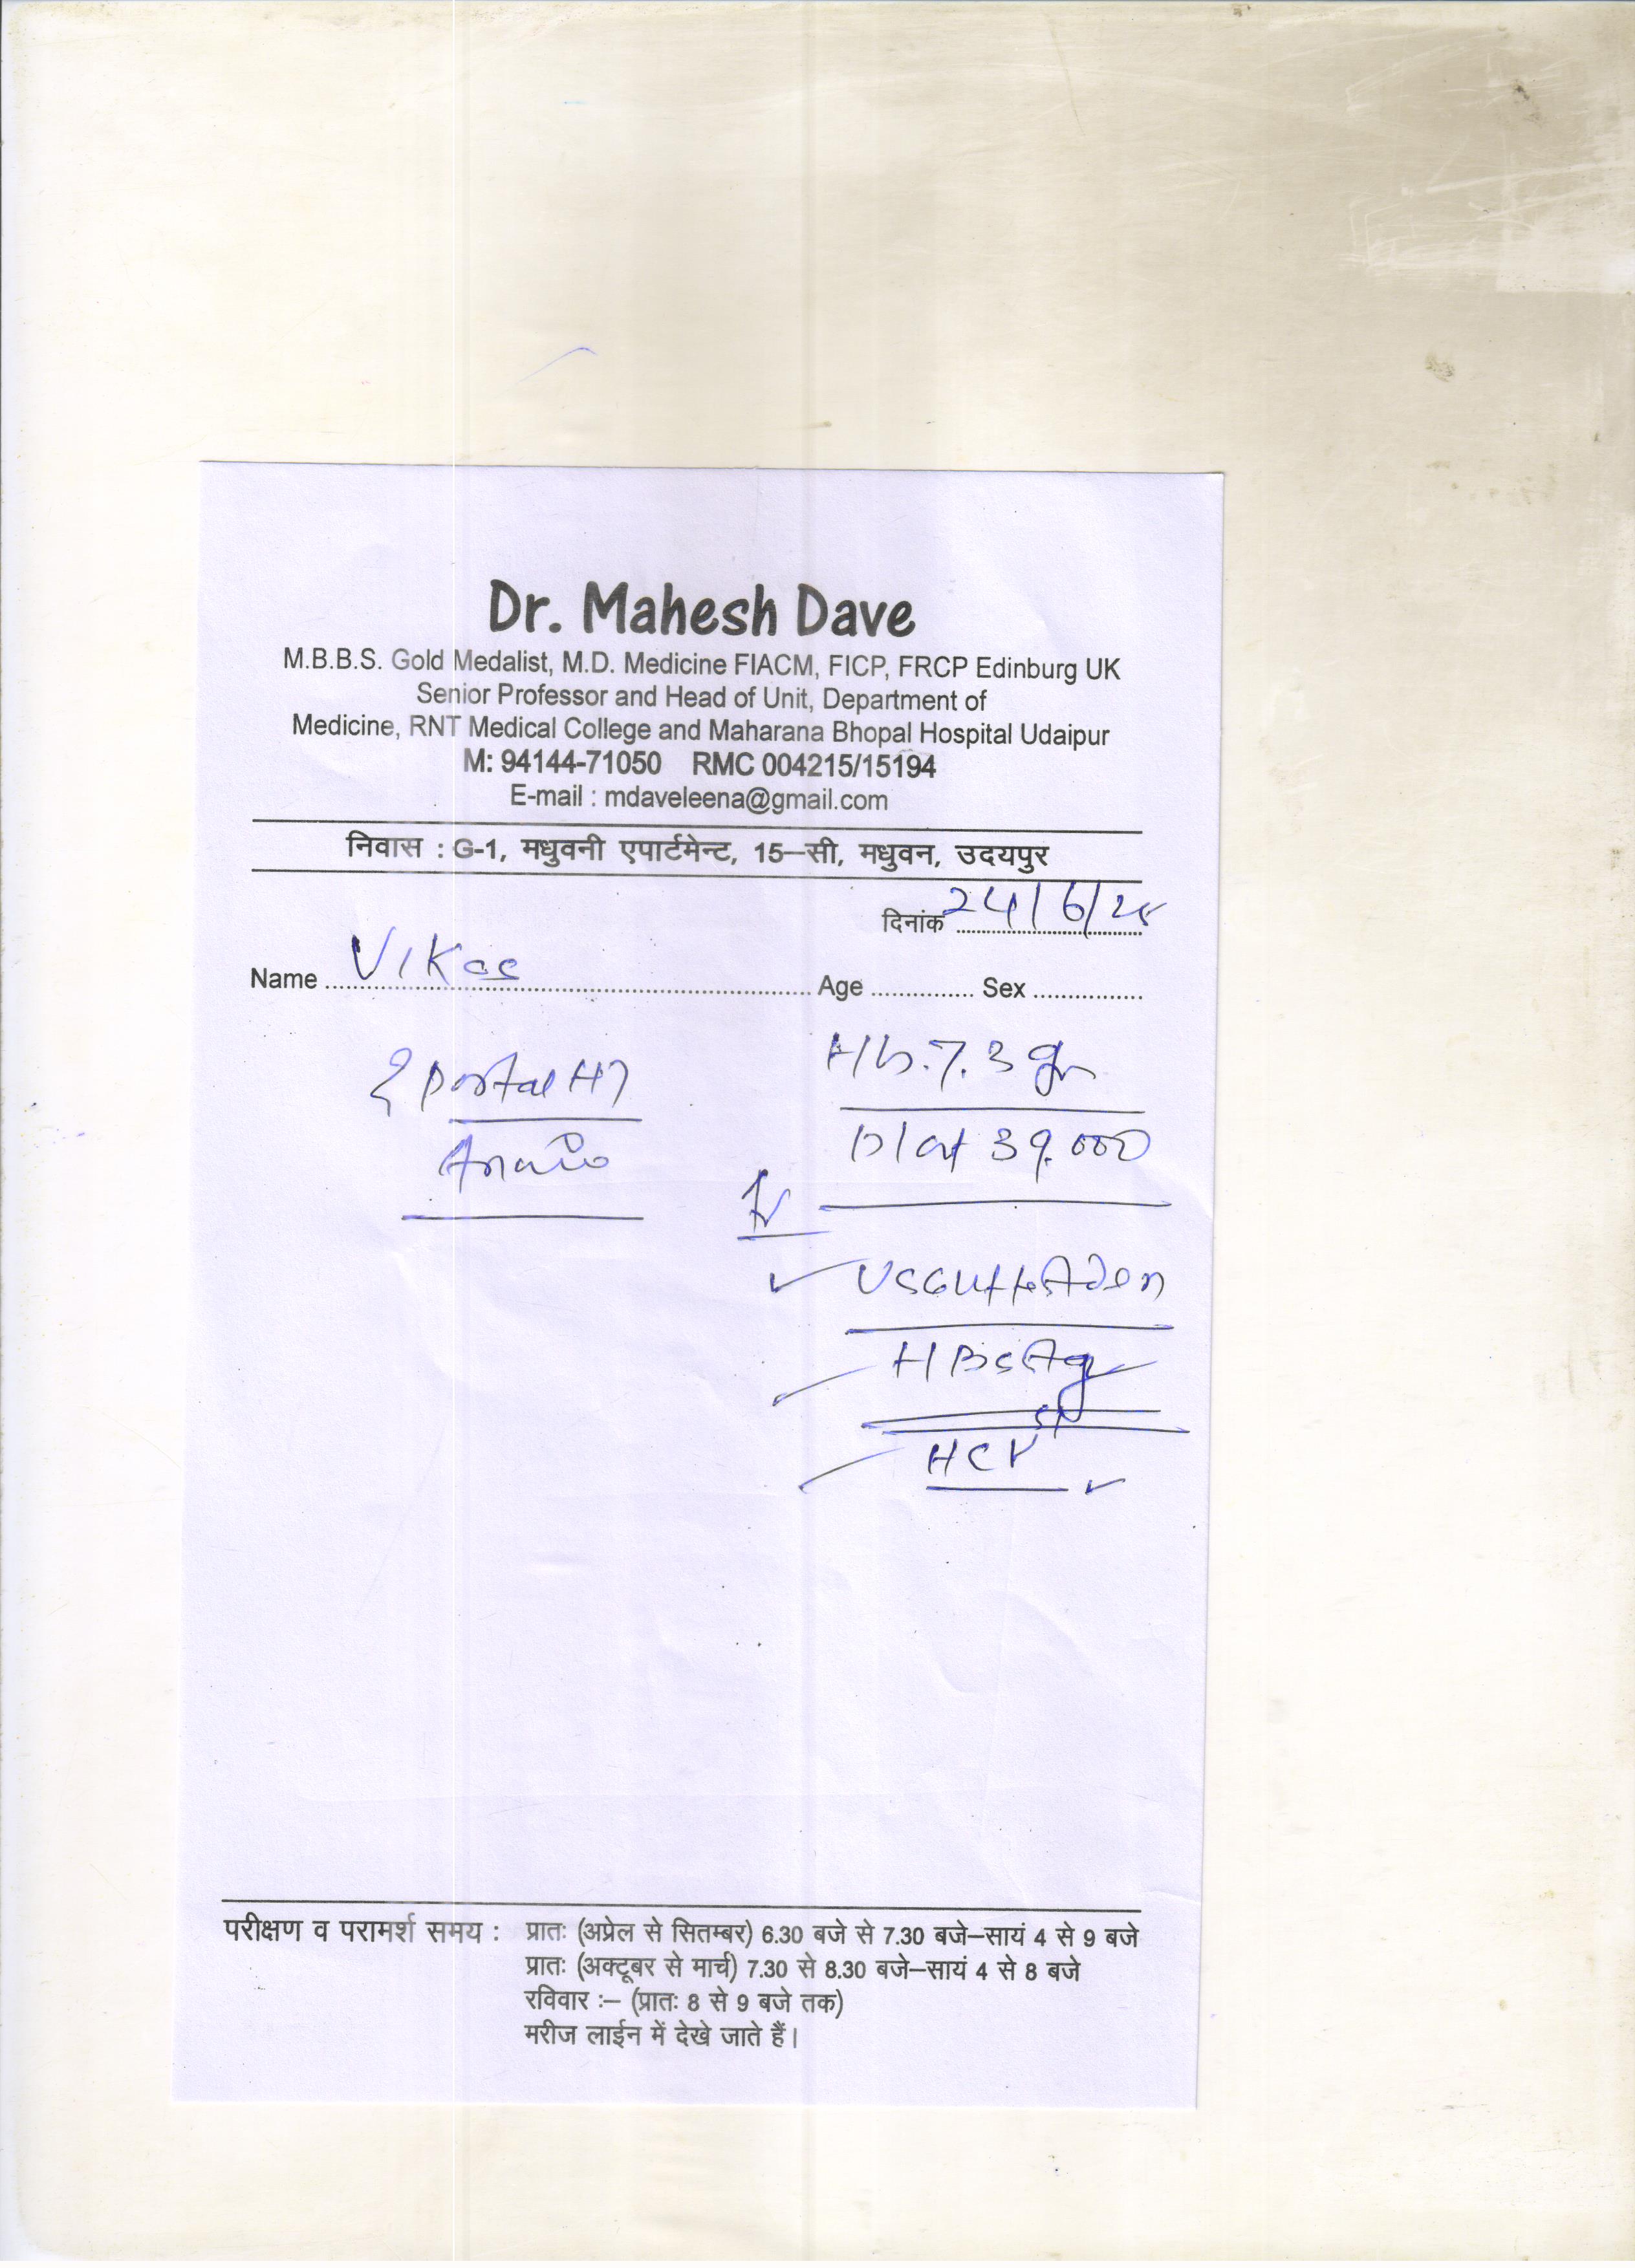 Dr. Mahesh Dave
M.B.B.S. Gold Medalist, M.D. Medicine FIACM, FICP, FRCP Edinburg UK
Senior Professor and Head of Unit, Department of
Medicine, RNT Medical College and Maharana Bhopal Hospital Udaipur
M: 94144-71050 RMC 004215/15194
E-mail : mdaveleena@gmail.com
निवास : G-1, मधुवनी एपार्टमेन्ट, 15–सी, मधुवन, उदयपुर
दिनांक 24/6/25
Name Vikas Age Sex
Portal HT
Hb. 7.3 gm
Plat 39,000
USG Abdomen
HBsAg
HCV
परीक्षण व परामर्श समय : प्रातः (अप्रेल से सितम्बर) 6.30 बजे से 7.30 बजे–सायं 4 से 9 बजे
प्रातः (अक्टूबर से मार्च) 7.30 से 8.30 बजे–सायं 4 से 8 बजे
रविवार :– (प्रातः 8 से 9 बजे तक)
मरीज लाईन में देखे जाते हैं।